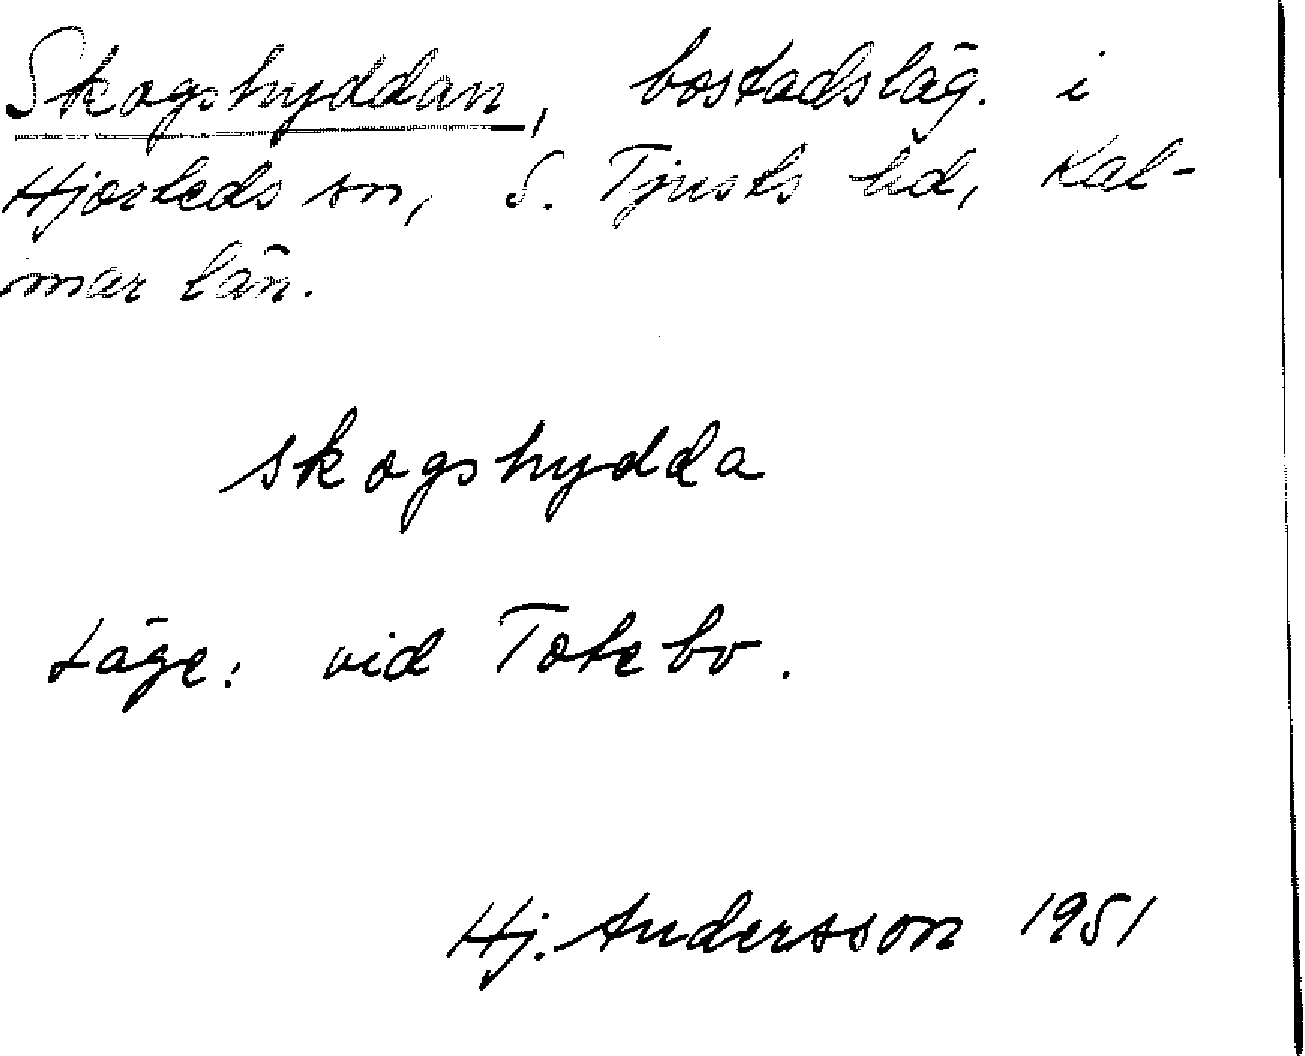 Skogshyddan, bostadsläg. i
Hjorteds sn, S. Tjusts hd, Kal-
mar län.
skogshydda
Läge: vid Totebo.
Hj. Andersson 1951